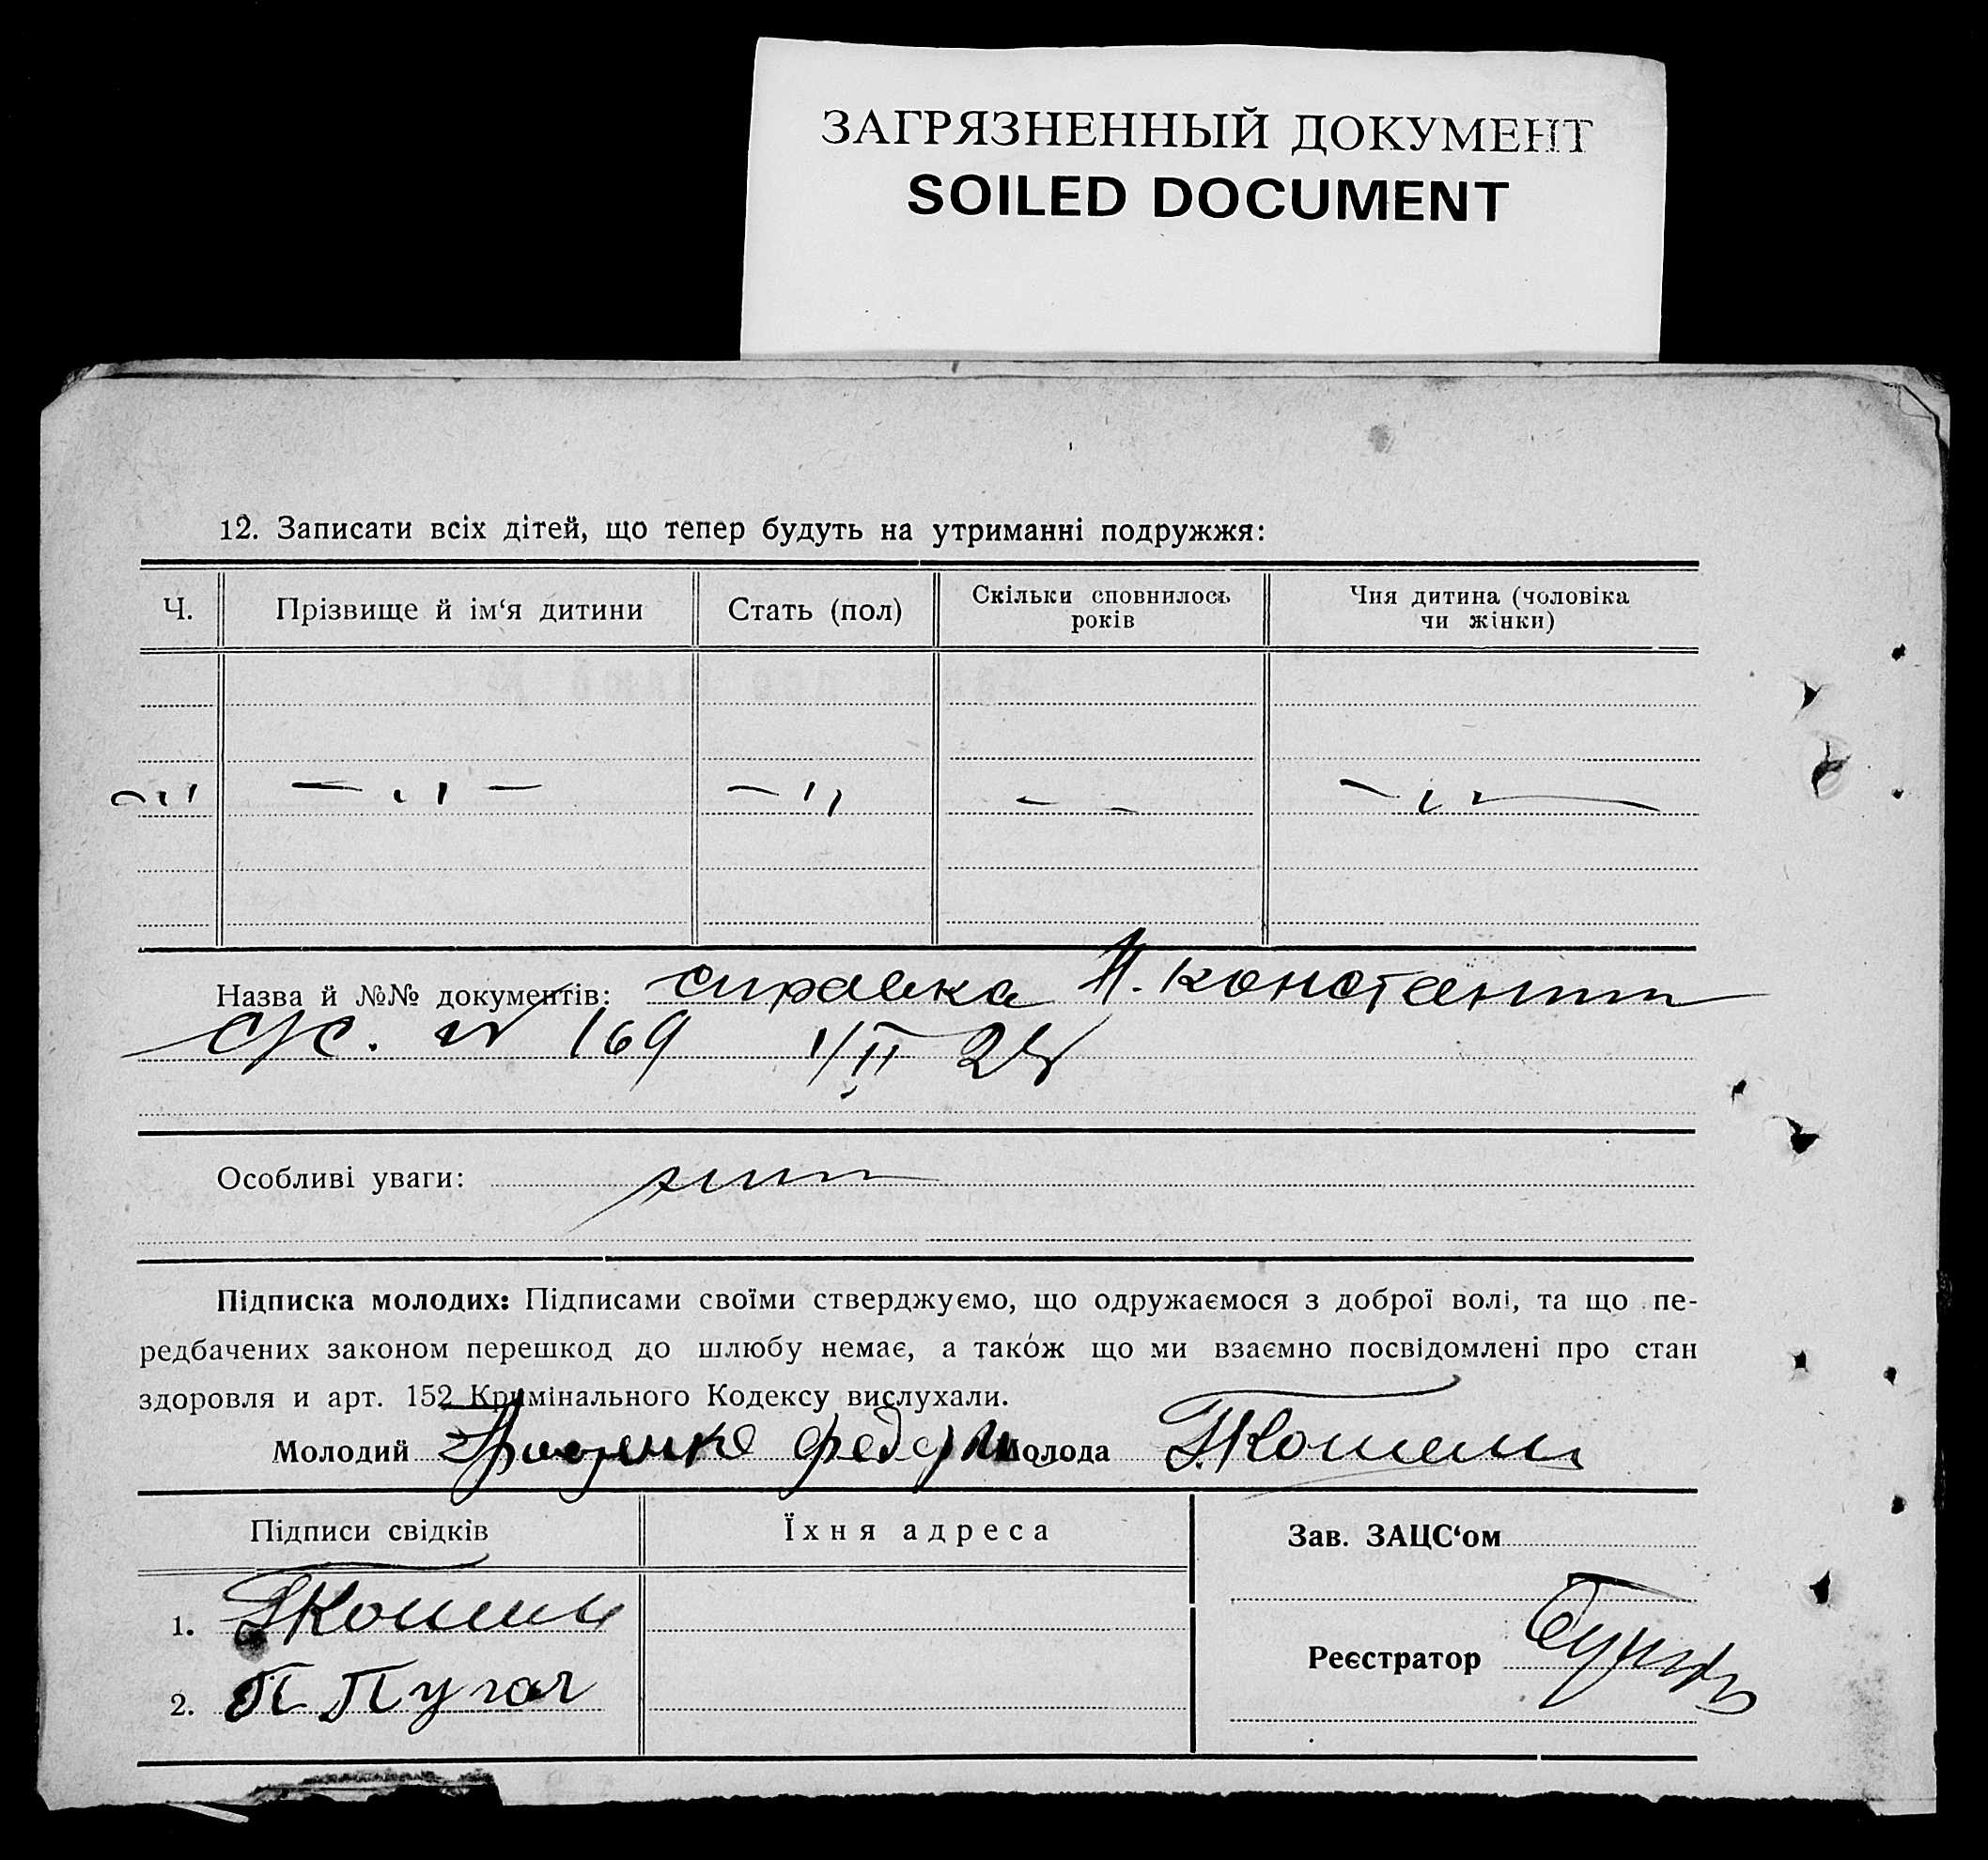 ЗАГРЯЗНЕННЫЙ ДОКУМЕНТ
SOILED DOCUMENT
12. Записати всіх дітей, що тепер будуть на утриманні подружжя:
Ч. Прізвище й ім‘я дитини Стать (пол) Скільки сповнилось років Чия дитина (чоловіка чи жінки)
Назва й №№ документів: справка Н. Констант
с/с. № 169 1/II
Особливі уваги:
Підписка молодих: Підписами своїми стверджуємо, що одружаємося з доброї волі, та що пе-
редбачених законом перешкод до шлюбу немає, а також що ми взаємно посвідомлені про стан
здоровля и арт. 152 Кримінального Кодексу вислухали.
Молодий Федор Молода
Підписи свідків Їхня адреса Зав. ЗАЦС‘ом
1.
Реєстратор
2. П Пугач